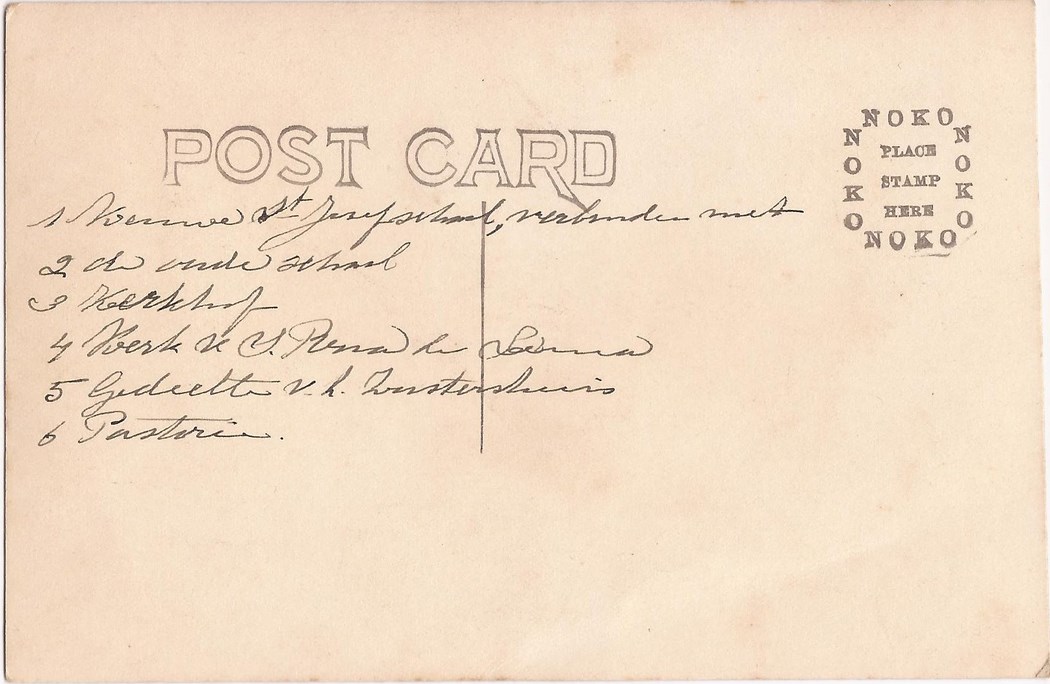 POST CARD
NOKO
NOKO
PLACE
STAMP
HERE
NOKO
NOKO
1 Nieuwe St Josefschool, verbonden met
2 de oude school
3 Kerkhof
4 Kerk v S. Rosa de Lima
5 Gedeelte v. h. Zustershuis
6 Pastorie.